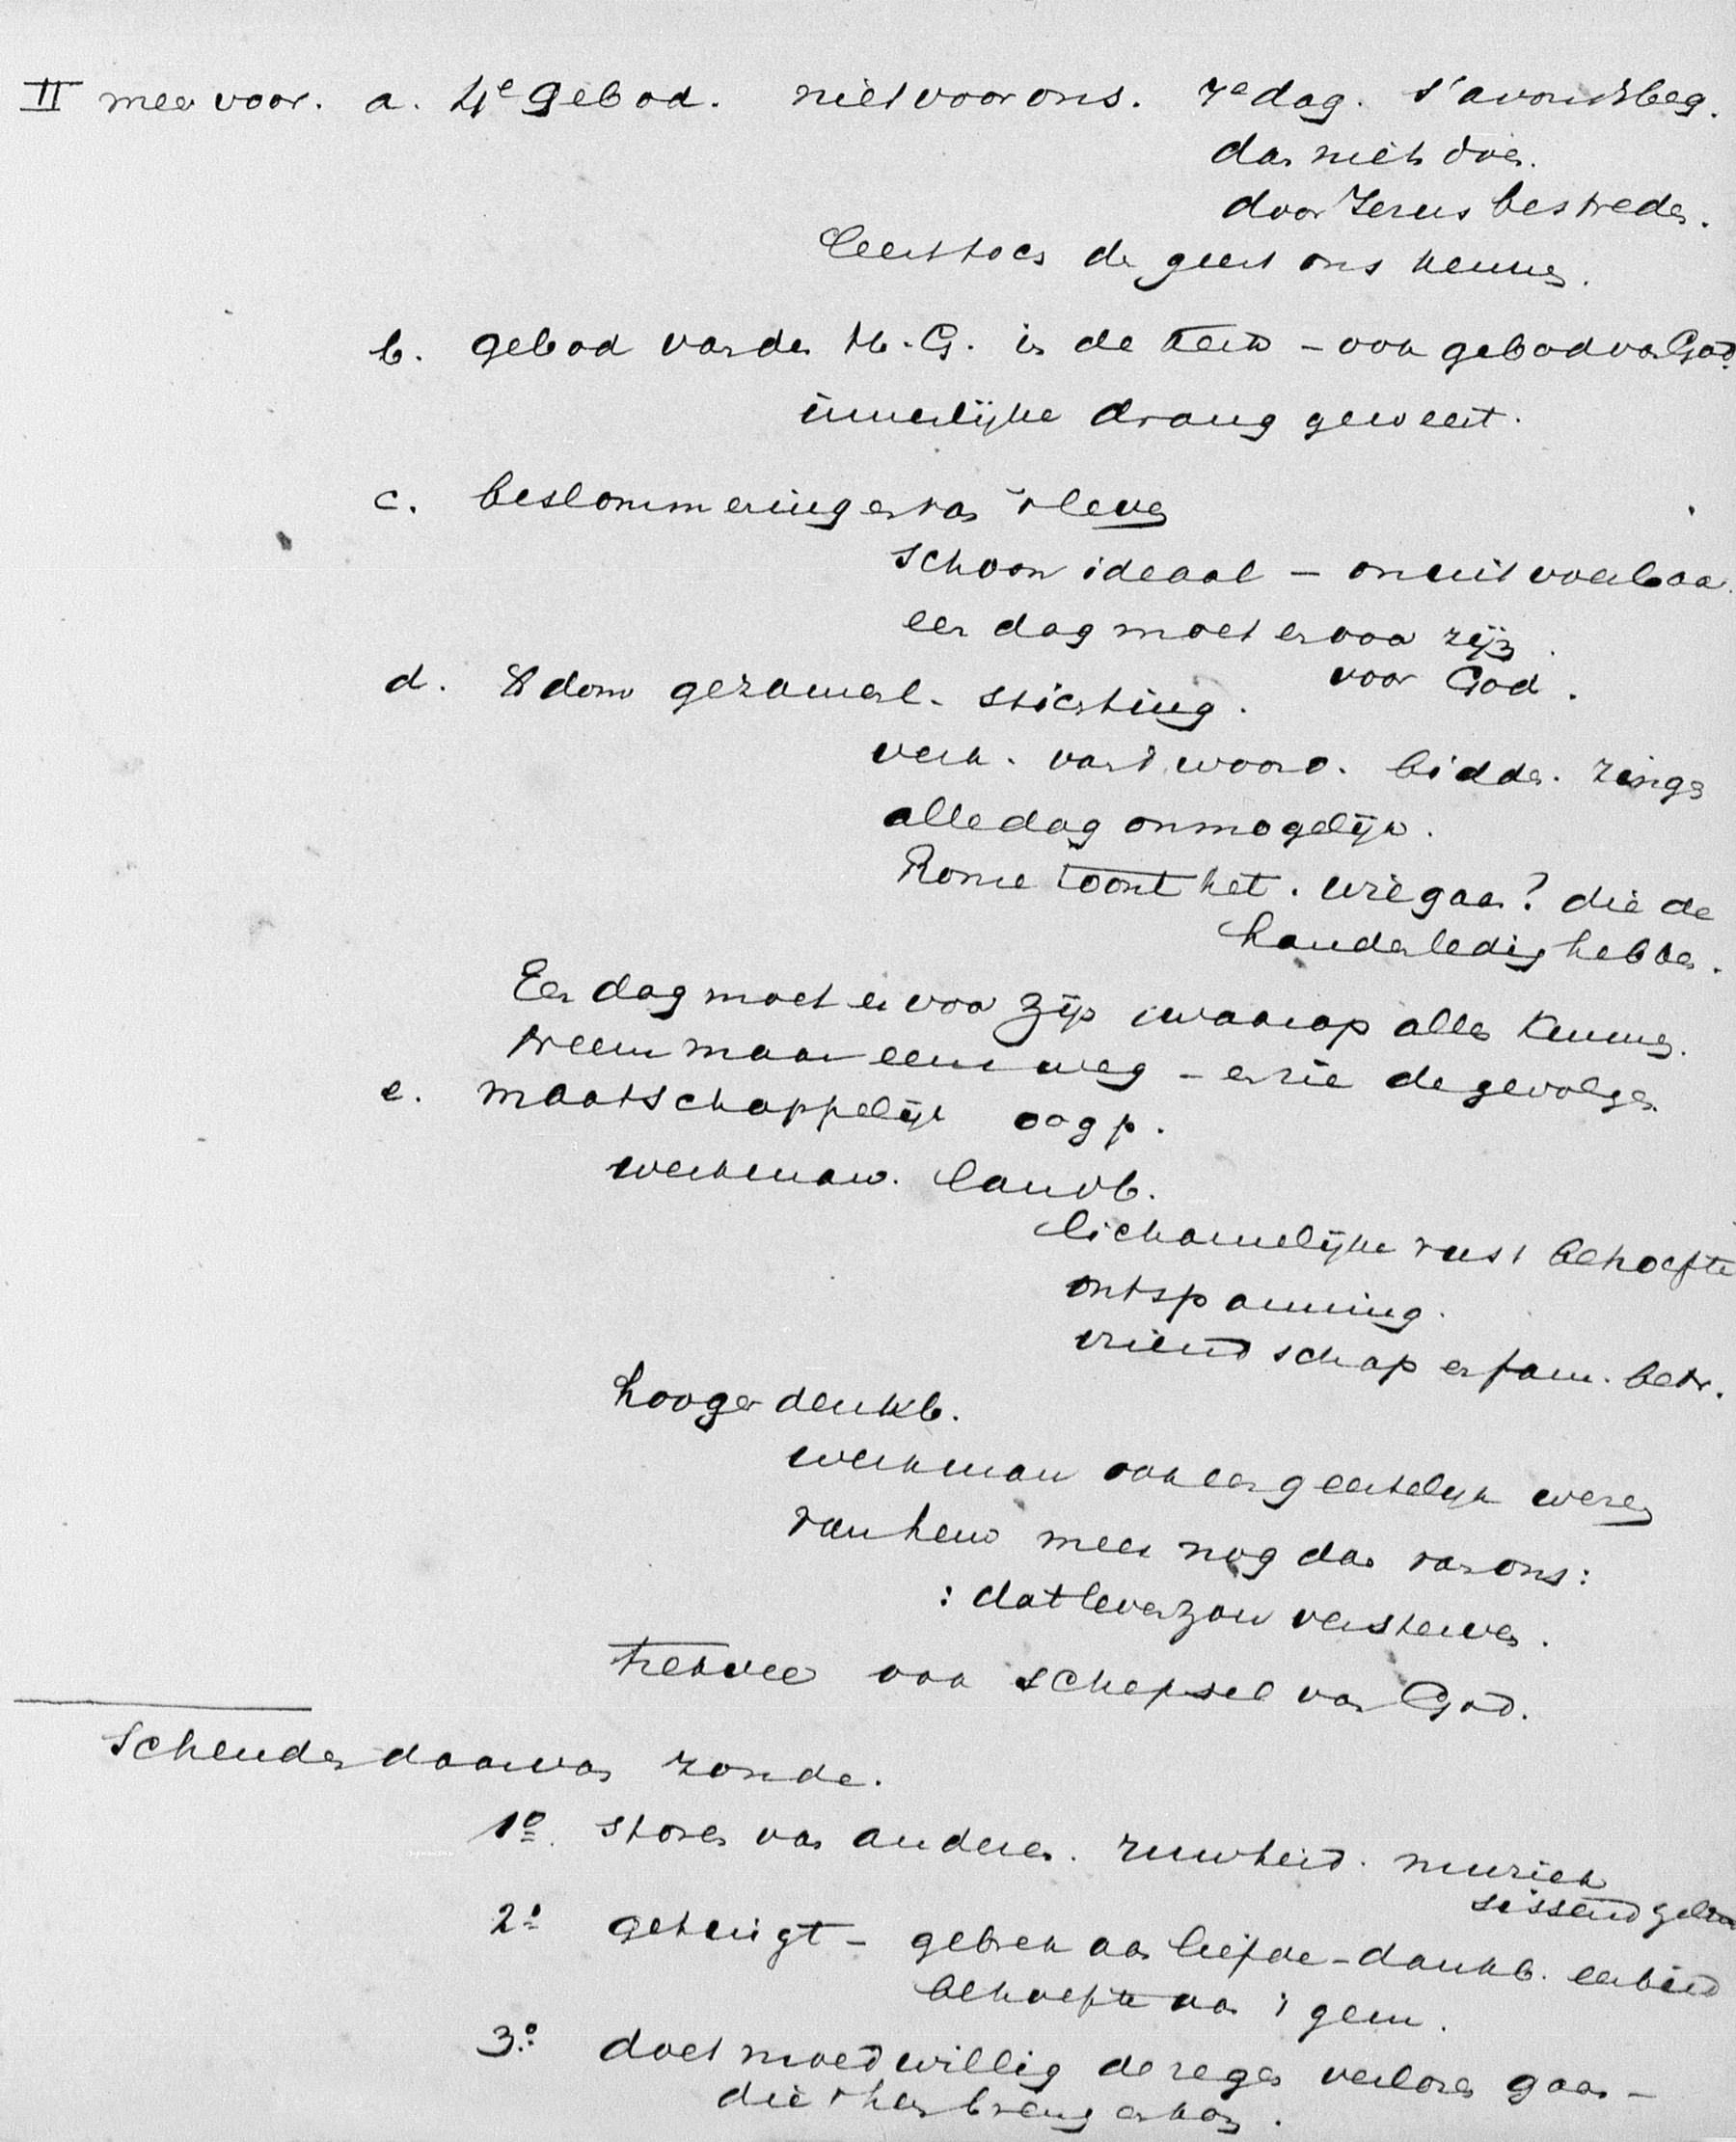 II mee voor. a. 4e gebod. niet voor ons. 7e dag. s'avondsbeg.
dan niets doen.
door Jezus bestreden.
leert toch de geest ons kennen.
b. gebod van den H. G. in de kerk - ook gebod van God.
innerlijke drang geweest.
c. beslommeringen van 't leven
schoon ideaal - onuitvoerbaar.
een dag moet ervoor zijn
voor God.
d. gezamenl. stichting.
verk. van 't woord. bidden. zingen
alle dag onmogelijk.
Rome toont het. wie gaan? die de
handen ledig hebben.
Een dag moet er voor zijn waarop allen kunnen.
neem maar eens weg - en zie de gevolgen
e. maatschappelijk oogp.
werkman. landb.
lichamelijke rust behoefte
ontspanning.
vriendschap en fam. betr.
hooger denkb.
werkman ook een geestelijk wezen
van hem meer nog dan van ons:
: dat leven zou versterven.
trekvee ook schepsel van God.
Schenden daarvan zonde.
1o. storen van anderen. ruwheid. muziek
2o. getuigt - gebrek aan liefde - dankb. eerbied
behoefte van 't gem.
3o. doet moedwillig de zegen verloren gaan -
die 't hem brengen kon.